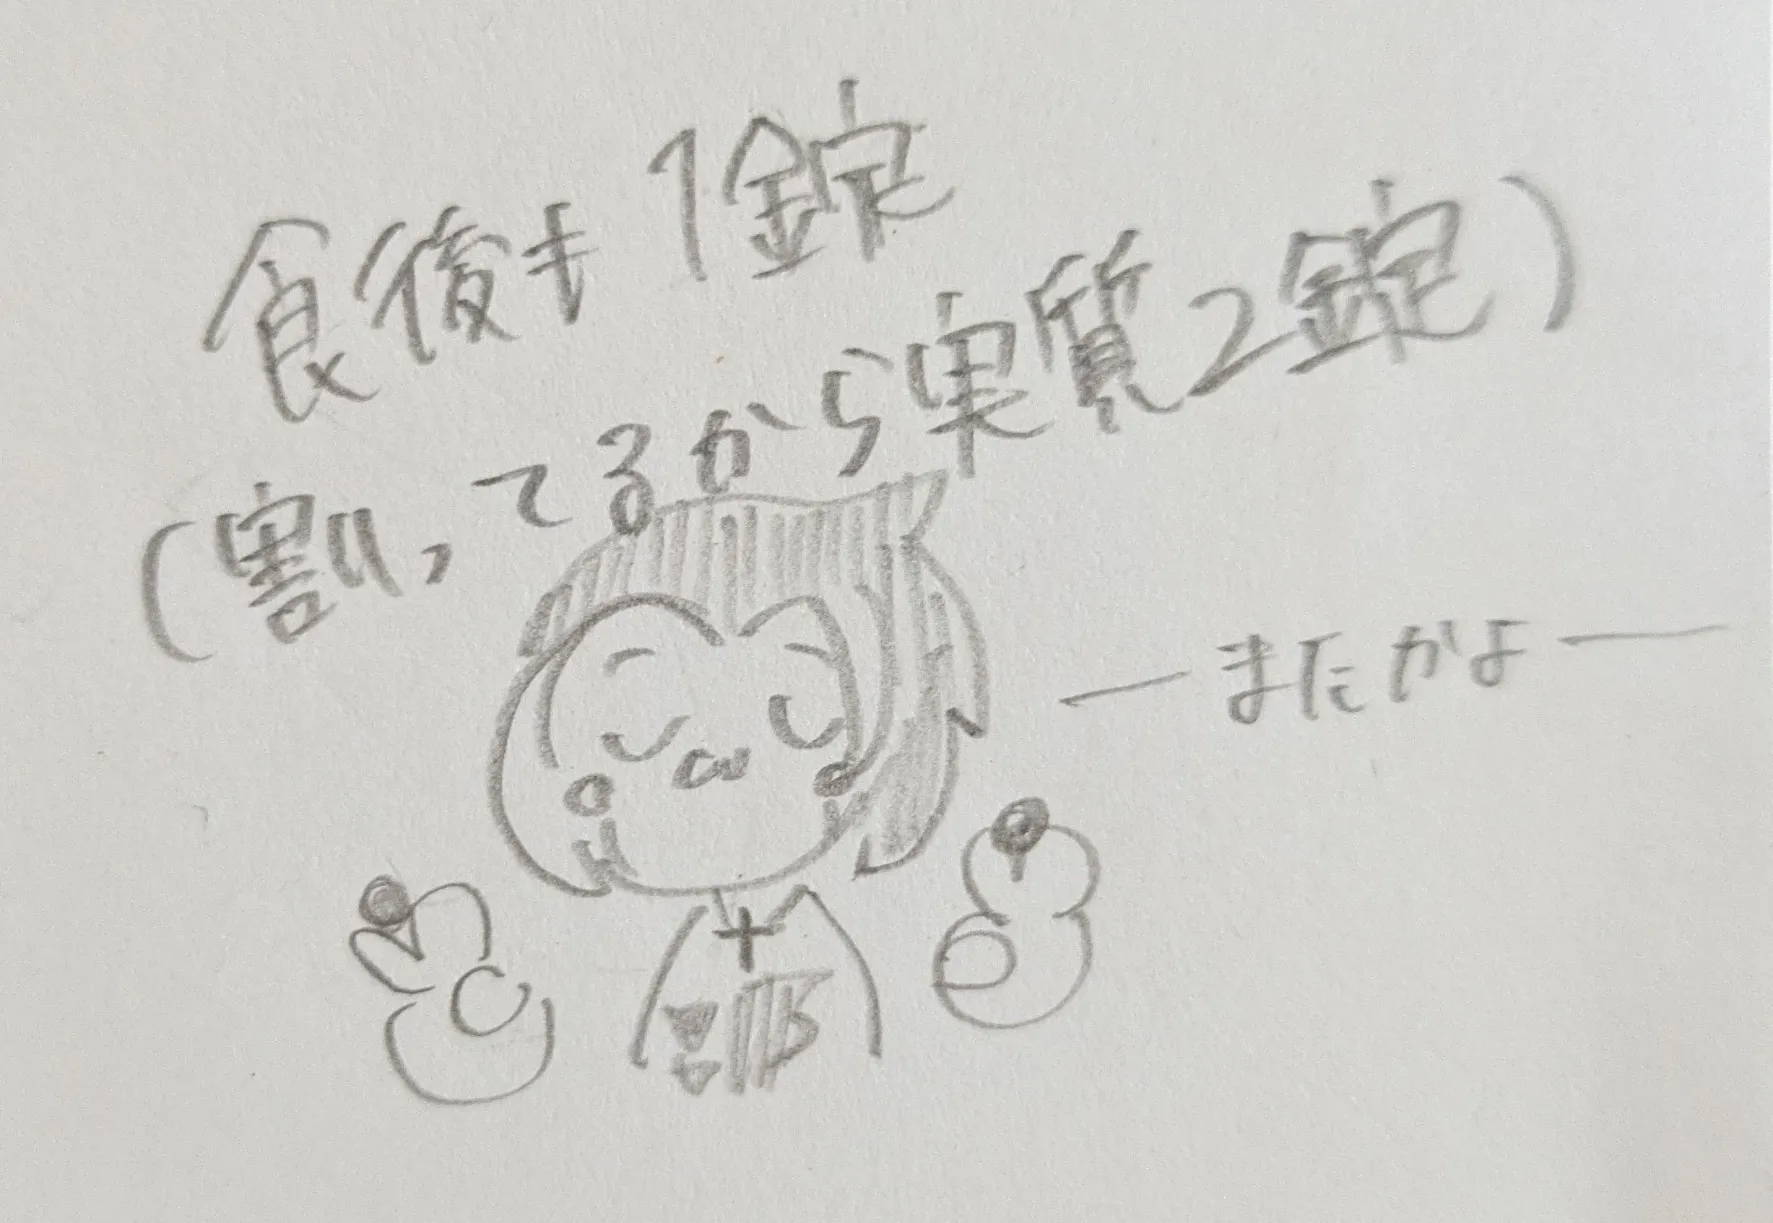 食後も1錠
(割ってるから実質2錠)
―またかよ―